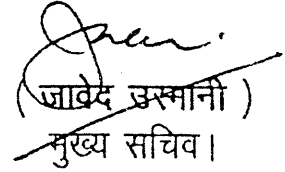 ( जावेद उस्मानी )
मुख्य सचिव।